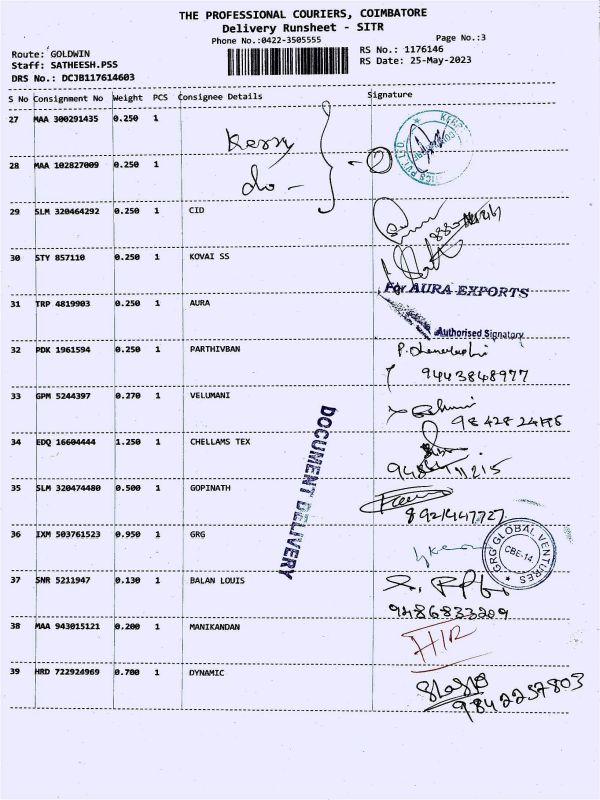 THE PROFESSIONAL COURIERS, COIMBATORE
Delivery Runsheet - SITR
Phone No.:0422-3505555
Page No.:3
Route: GOLDWIN
RS No.: 1176146
Staff: SATHEESH.PSS
RS Date: 25-May-2023
DRS No.: DCJB117614603
S No Consignment No Weight PCS Consignee Details Signature
27 MAA 300291435 0.250 1 Kerry
28 MAA 102827009 0.250 1 do -
29 SLM 320464292 0.250 1 CID
30 STY 857110 0.250 1 KOVAI SS
For AURA EXPORTS
31 TRP 4819903 0.250 1 AURA
Authorised Signatory
32 PDK 1961594 0.250 1 PARTHIVBAN
9443848977
33 GPM 5244397 0.270 1 VELUMANI
DOCUMENT DELIVERY
34 EDQ 16604444 1.250 1 CHELLAMS TEX
35 SLM 320474480 0.500 1 GOPINATH
8921447727
36 IXM 503761523 0.950 1 GRG
GRG GLOBAL VENTURES
CBE-14.
37 SNR 5211947 0.130 1 BALAN LOUIS
9486833209
38 MAA 943015121 0.200 1 MANIKANDAN
H/R
39 HRD 722924969 0.700 1 DYNAMIC
9842257803